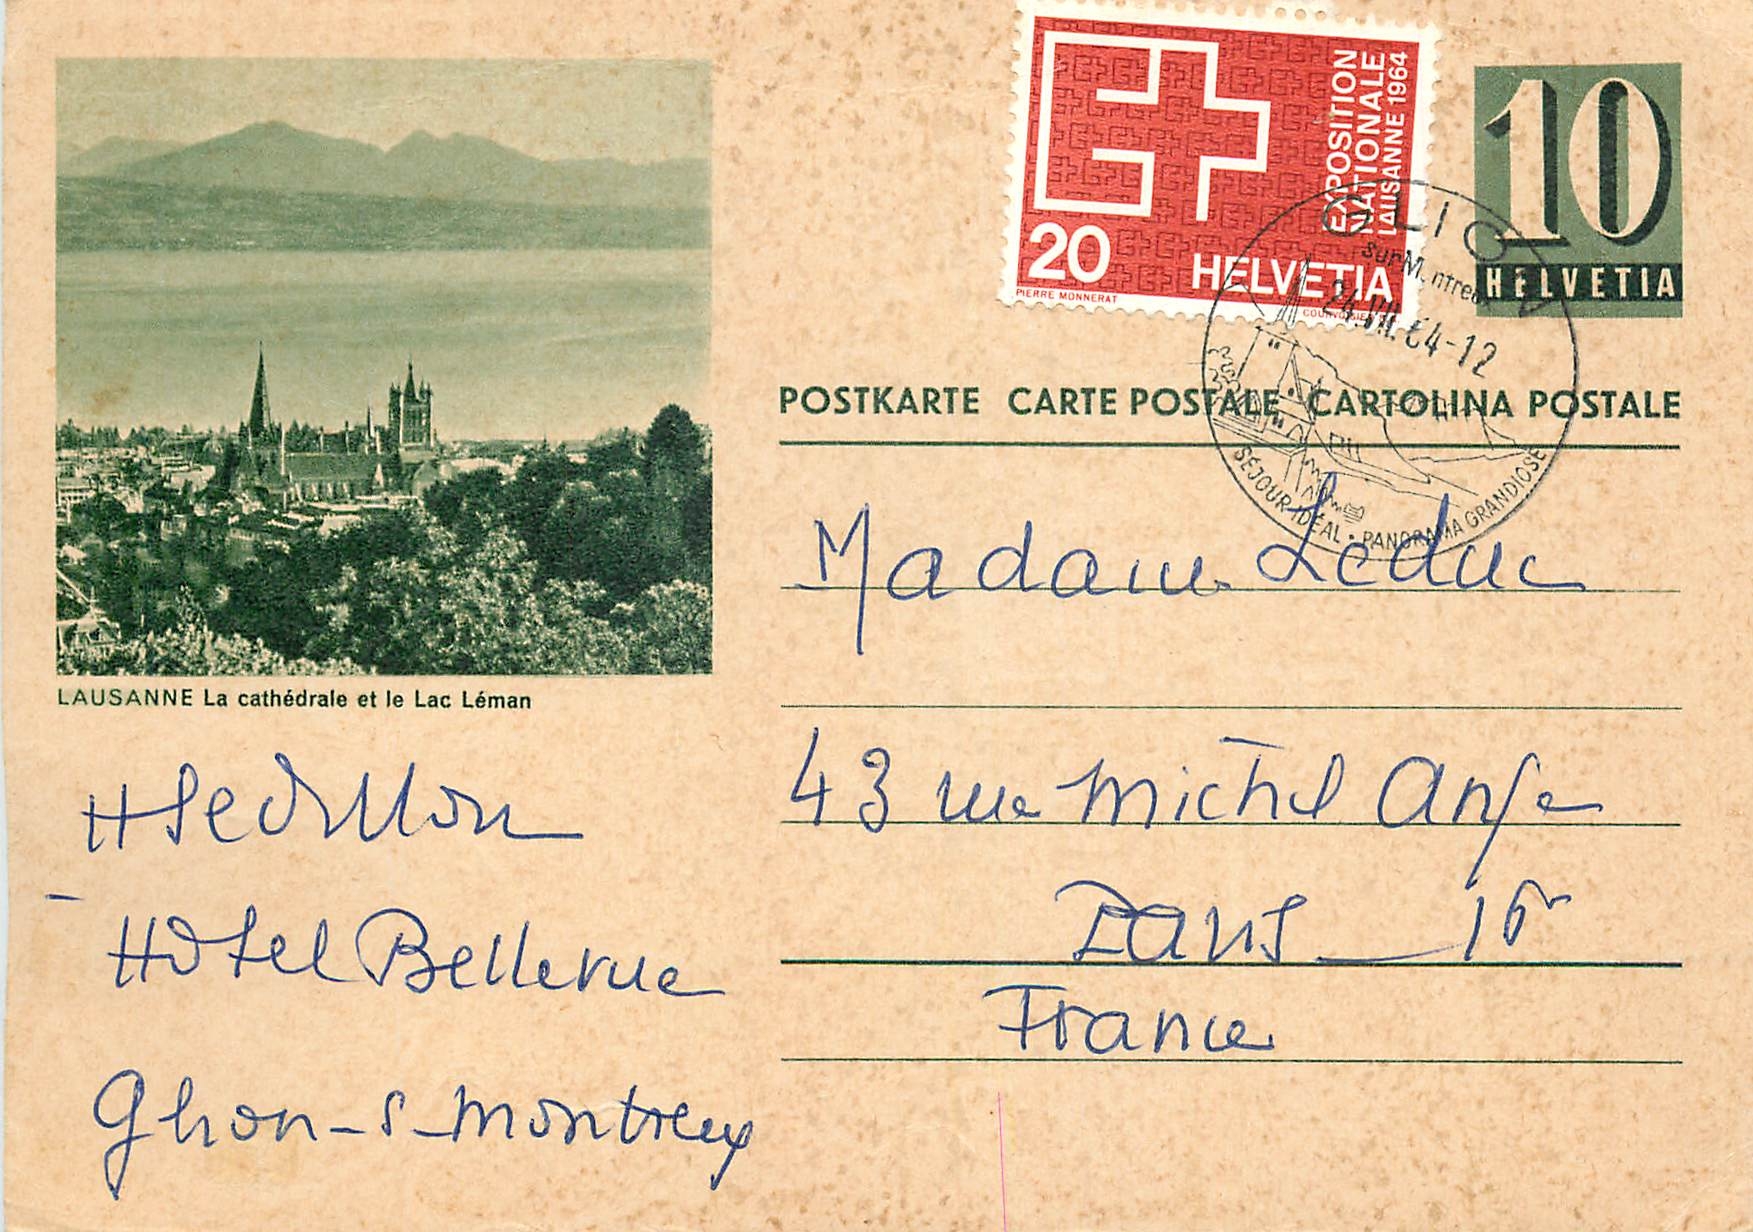 EXPOSITION
NATIONALE
LAUSANNE 1964
20
HELVETIA
PIERRE MONNERAT
COURVOISIER
10
HELVETIA
GLION
sur Montreux
24.VII.64-12
SÉJOUR IDÉAL • PANORAMA GRANDIOSE
POSTKARTE CARTE POSTALE CARTOLINA POSTALE
LAUSANNE La cathédrale et le Lac Léman
Madame Leduc
43 rue Michel Ange
Paris 16e
France
H Sedillon
Hôtel Bellevue
Glion-s-Montreux